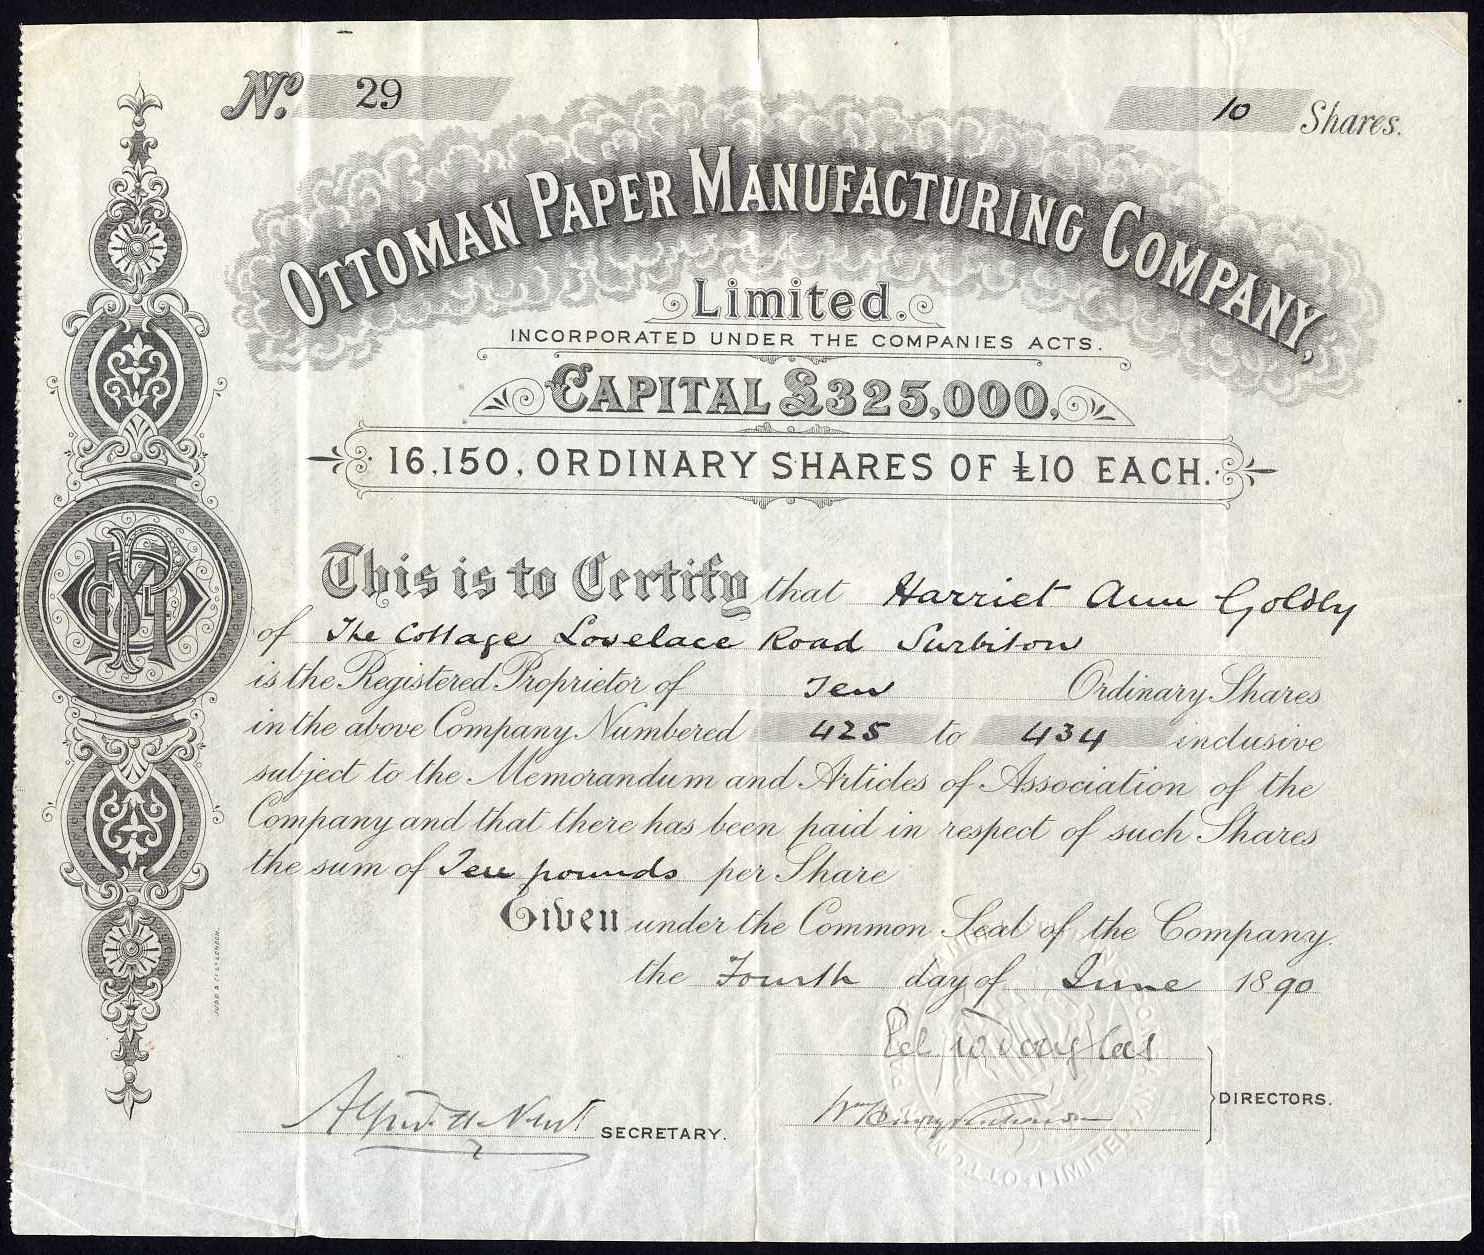 No. 29
10 Shares.
OTTOMAN PAPER MANUFACTURING COMPANY,
Limited.
INCORPORATED UNDER THE COMPANIES ACTS.
CAPITAL £325,000,
16,150, ORDINARY SHARES OF £10 EACH.
This is to Certify that Harriet Ann Goldby
of The Cottage Lovelace Road Surbiton
is the Registered Proprietor of Ten Ordinary Shares
in the above Company Numbered 425 to 434 inclusive
subject to the Memorandum and Articles of Association of the
Company and that there has been paid in respect of such Shares
the sum of Ten pounds per Share
Given under the Common Seal of the Company.
the Fourth day of June 1890
Douglas
Alfred H.
SECRETARY.
Wm Henry
DIRECTORS.
JUDD & Co LD LONDON.